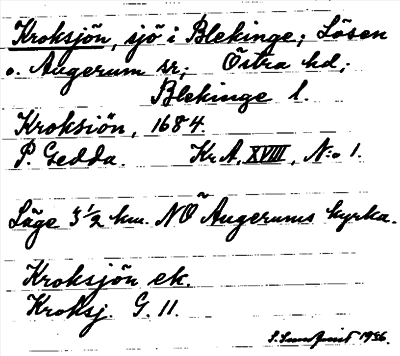 Kroksjön, sjö i Blekinge; Lösen
o. Augerum sr; Östra hd;
Blekinge l.
Kroksiön, 1684.
P. Gedda. KrA, XVIII, N:o 1.
Läge 3 1/2 km. NÖ Augerums kyrka.
Kroksjön ek.
Kroksj. G. 11.
S. Sundquist 1956.